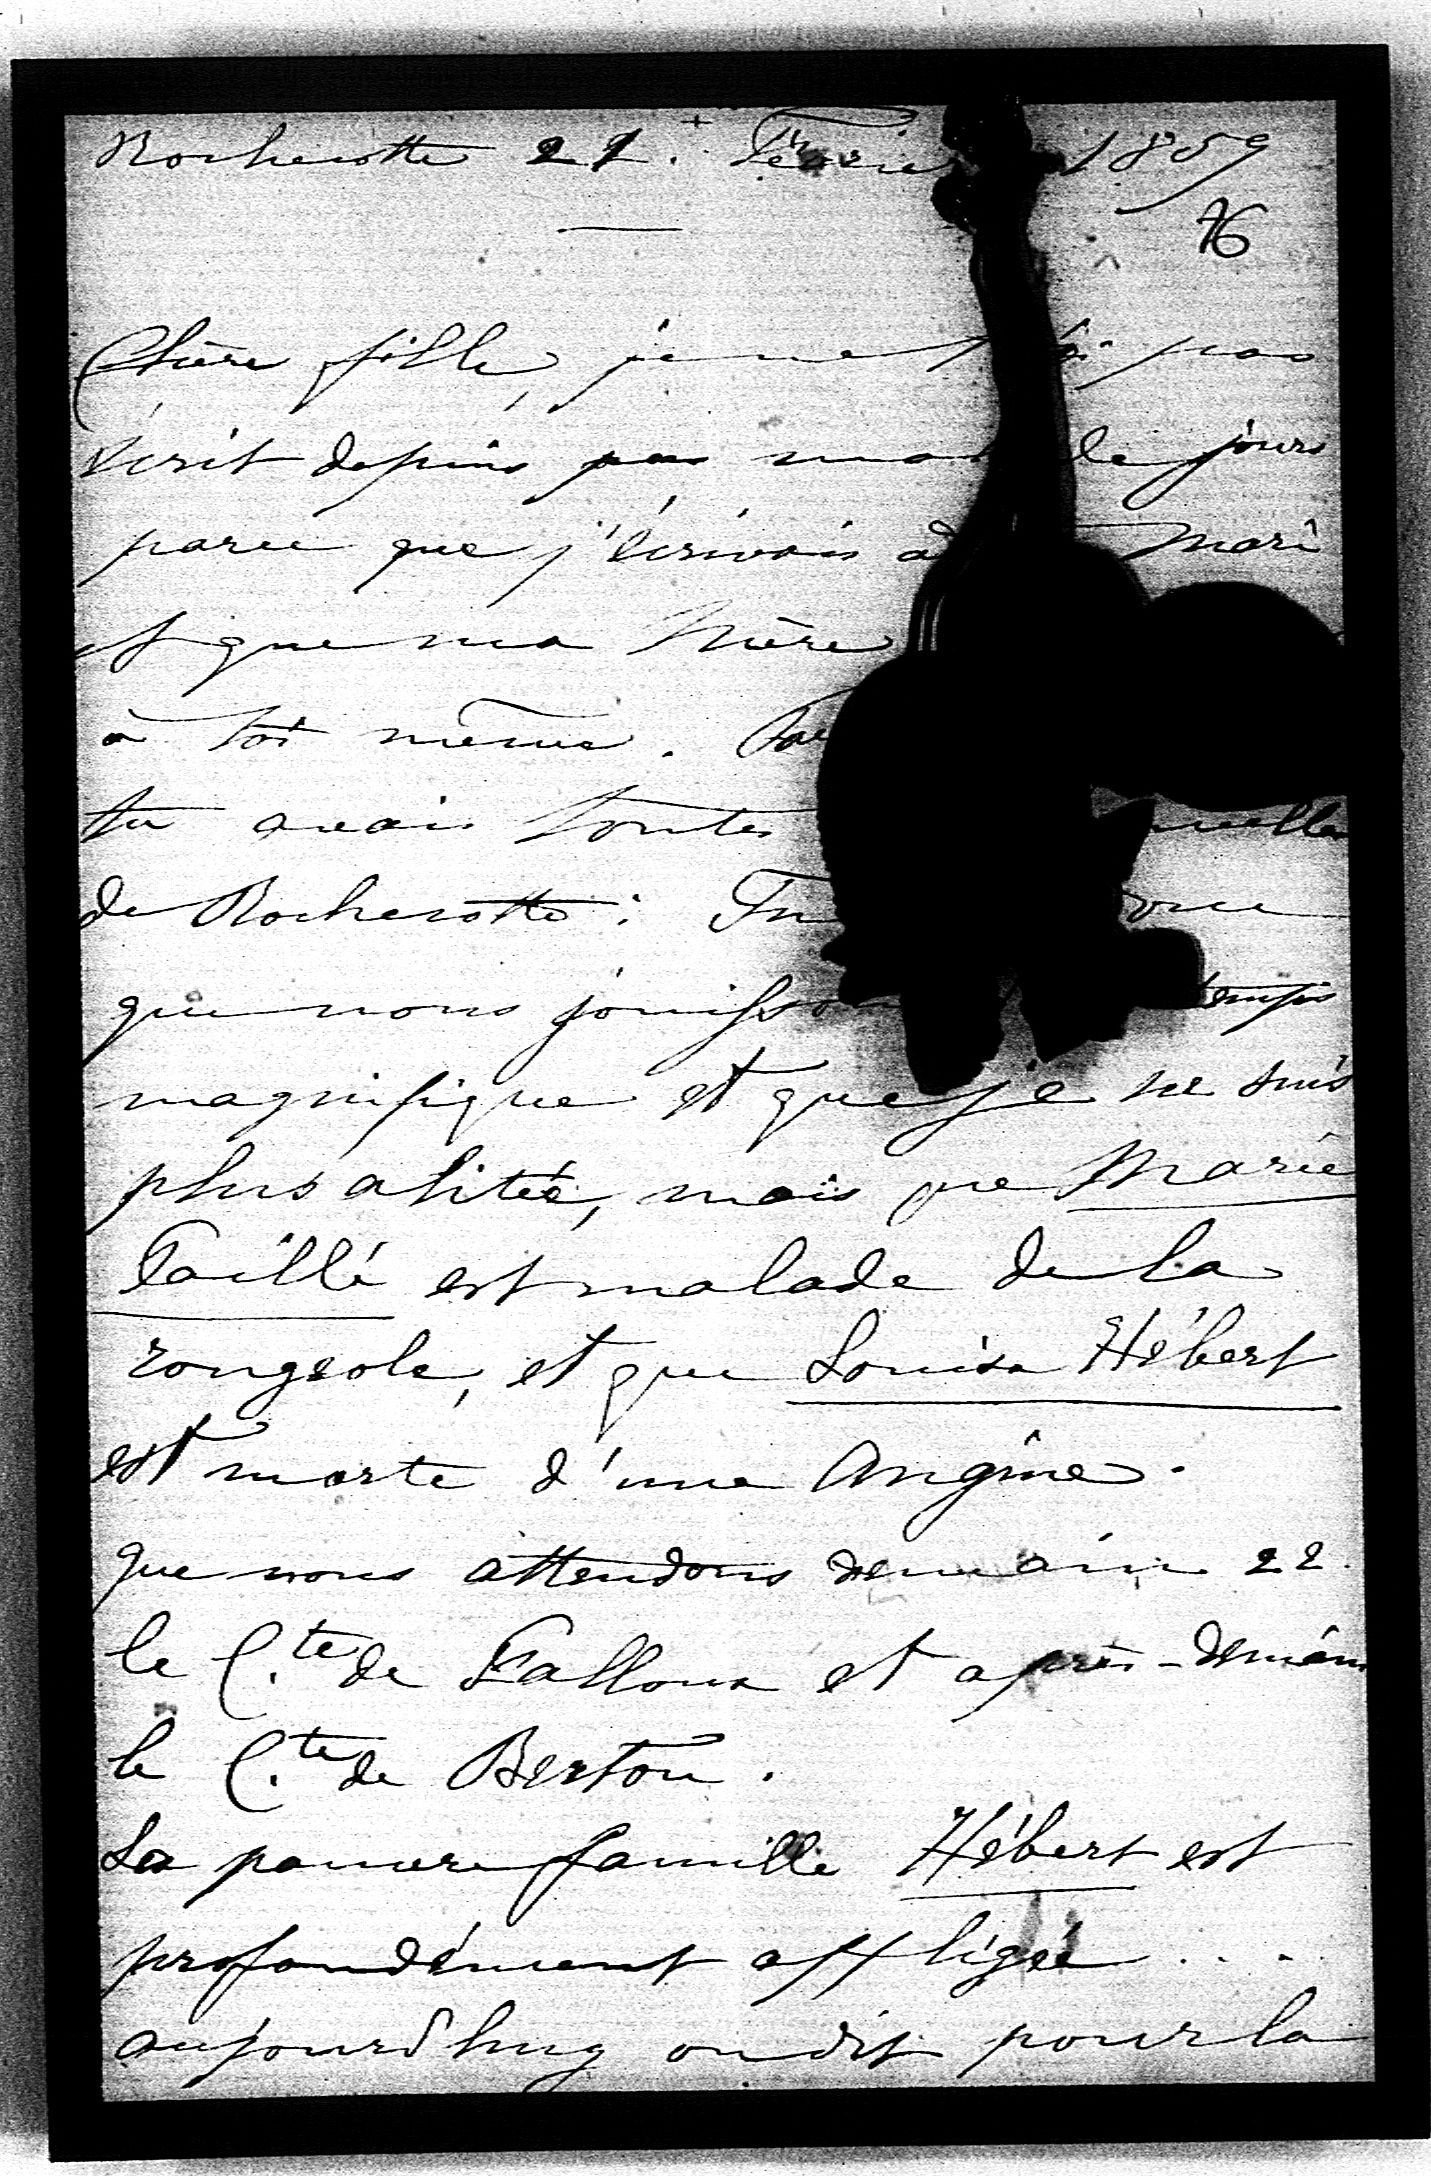 Rochecotte 21. Février 1859
76
Chère fille, je ne t'ai pas
écrit depuis pas mal de jours
parce que j'écrivais à mari
et que ma Mère
à toi même.
tu avais toutes
de Rochecotte:
que nous jouissons temps
magnifique et que je ne suis
plus alitée, mais que Marie
Taillé est malade de la
rougeole, et que Louise Hébert
est morte d'une Angine.
que nous attendons demain 22
le C.te de Falloux et après-demain
le C.te de Bertou.
La pauvre famille Hébert est
profondément affligée ...
aujourd'huy on dit pour la